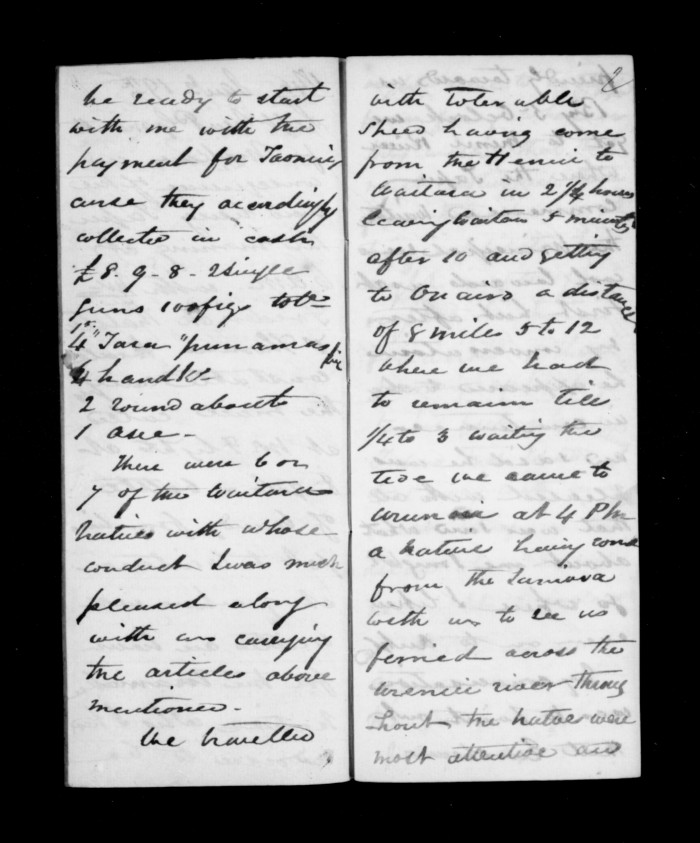 be ready to start
with me with the
payment for Taoming
arise they accordingly
collected in cash
£8.9-8-2 single
guns 100 figs tob
4 "Tara" punamas
4 handk
2 round abouts
1 axe -
There were 6 or
7 of the Waitara
natives with whose
conduct I was much
pleased along
with us carrying
the articles above
mentioned -
We travelled
2
with tolerable
speed having come
from the Henui to
Waitara in 2 1/4 hours
leaving Waitara 5 minutes
after 10 and getting
to Onairo a distance
of 8 miles 5 to 12
where we had
to remain till
1/4 to 3 waiting the
tide we came to
at 4 PM
a native having come
from the
with us to see us
ferried across the
river through
hout the natives were
most attentive and